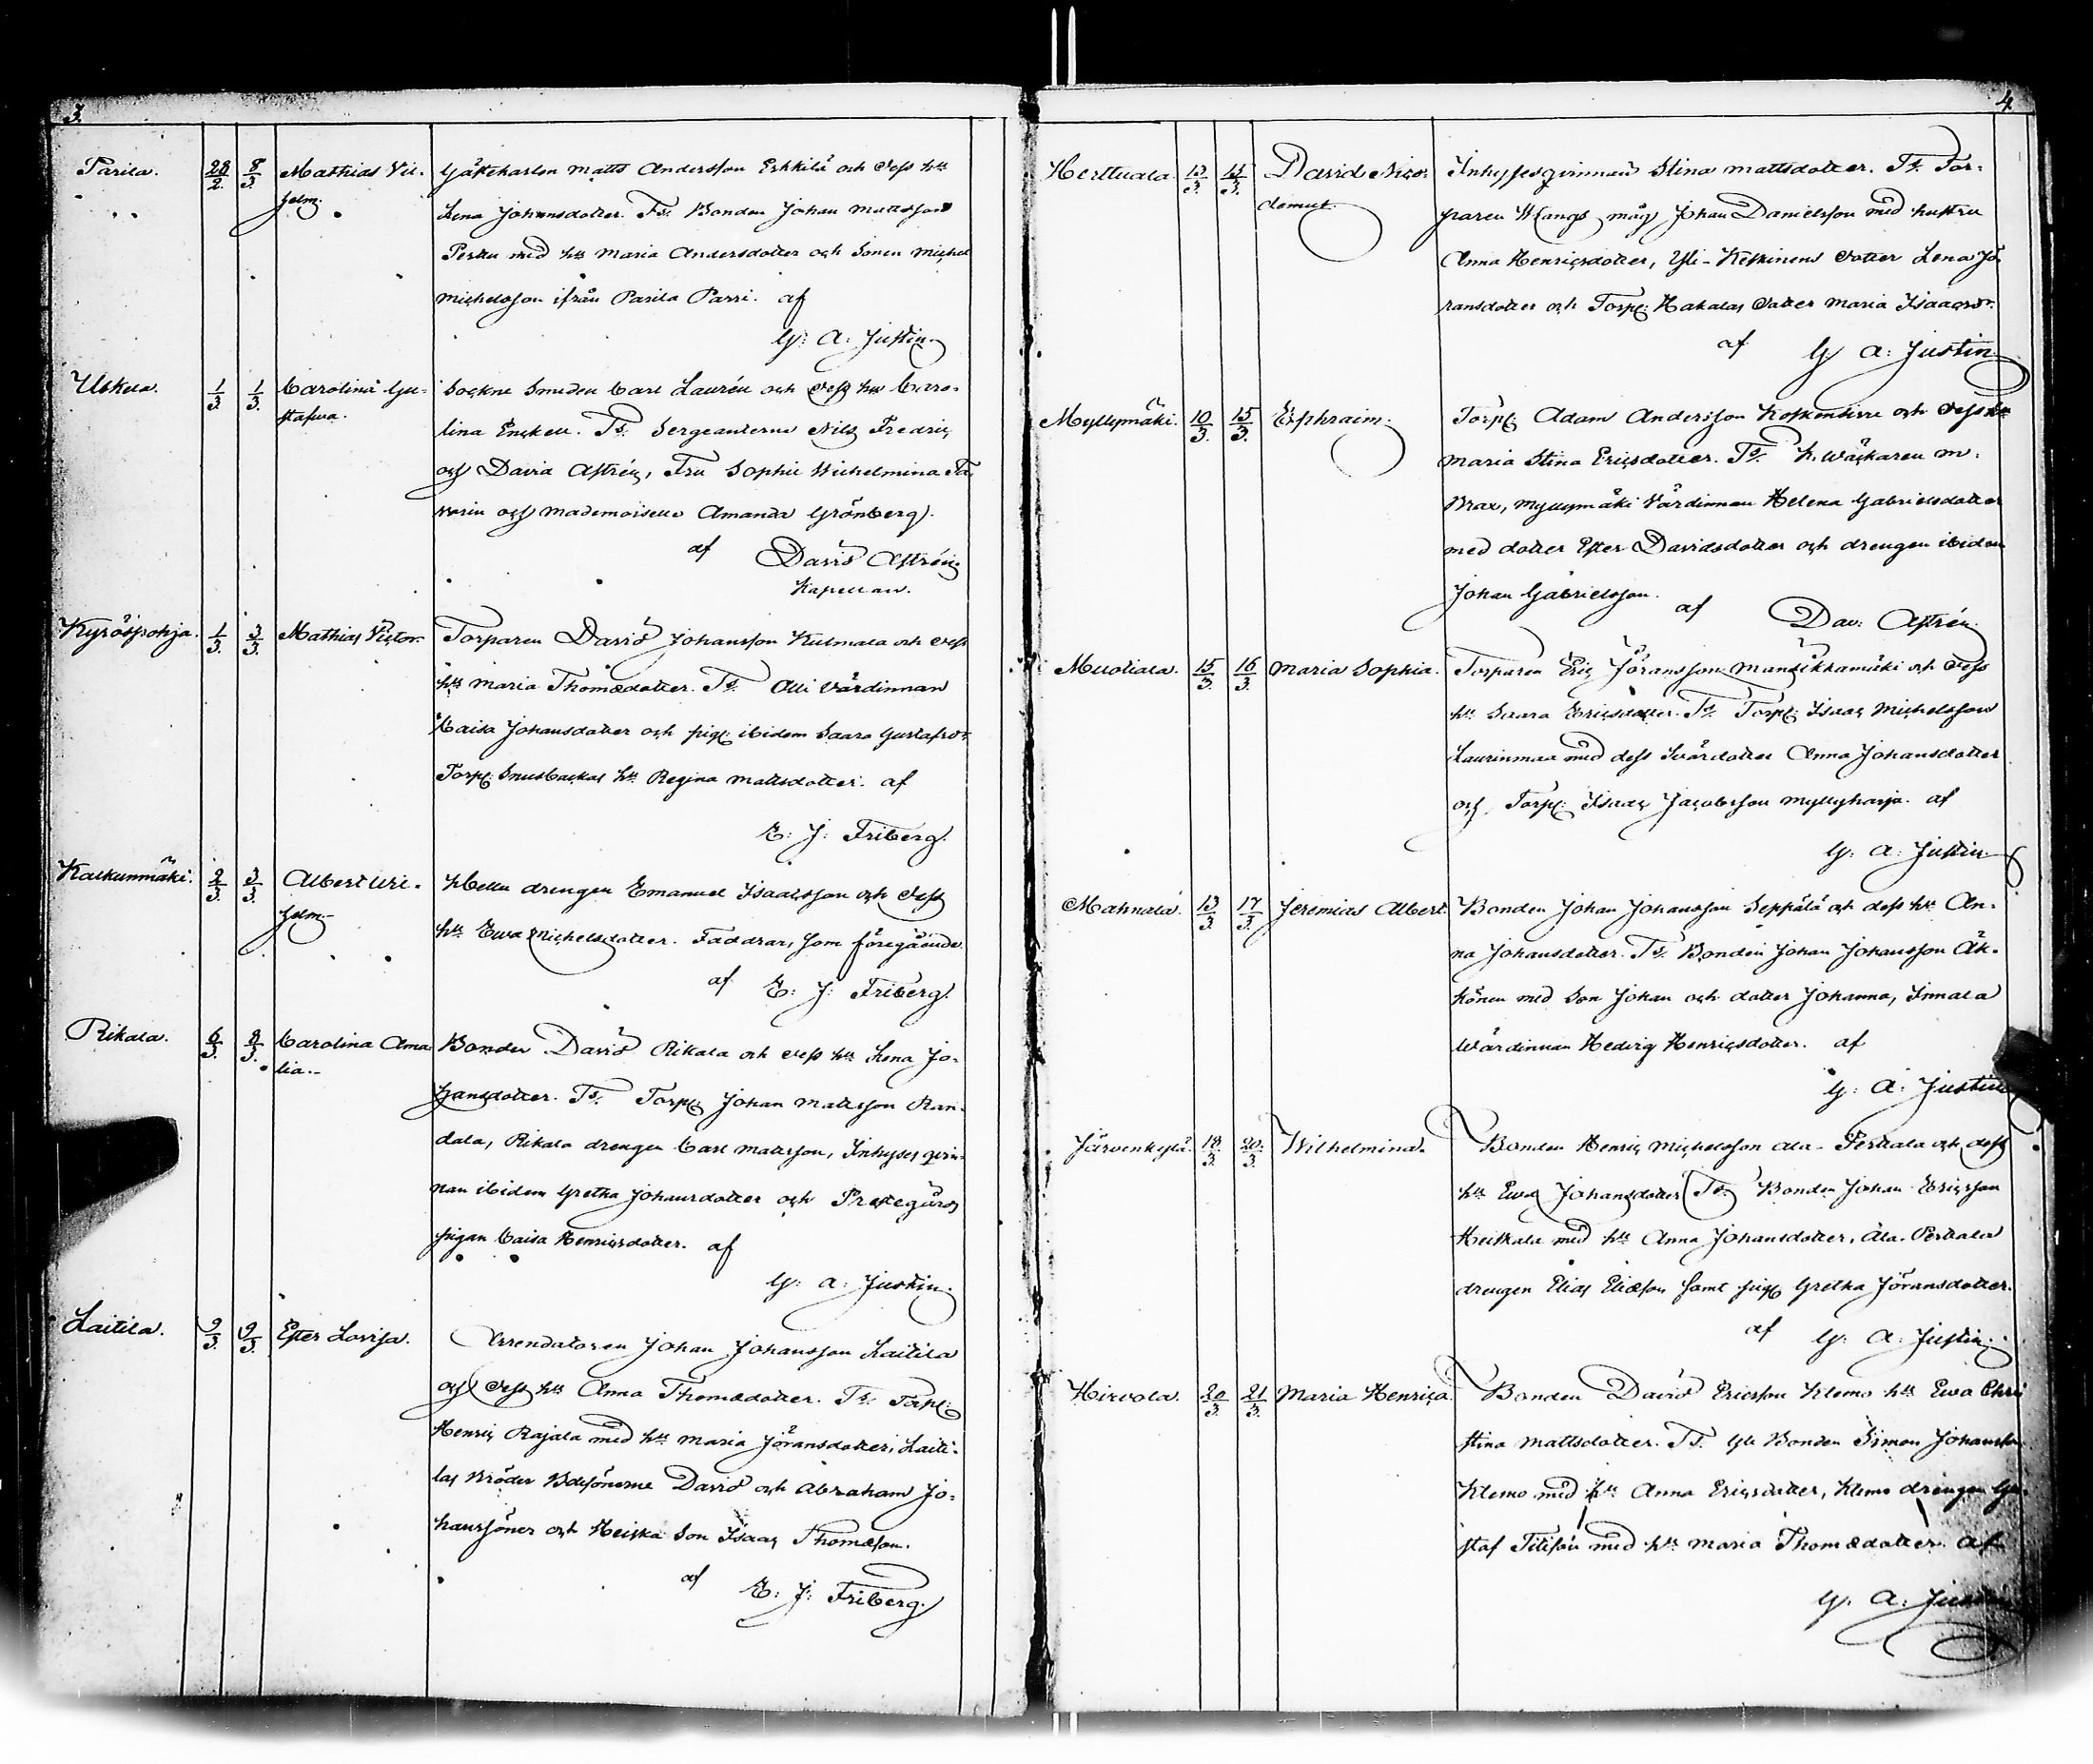 3.
Parila. 28/2 8/3 Mathias Vil- Gästekarlen Matts Andersson Erkkilä och dess hu
helm. Lena Johansdotter. Ts. Bonden Johan Mattsson
Perttu med hu Maria Andersdotter och Sonen Michel
Michelsson ifrån Parila Parri. af
G: A: Justin.
Uskela. 1/3 1/3 Carolina Gu- Sockne Smeden Carl Laurén och dess hu Caro-
stafva. lina Enckell. Ts. Sergeanterne Nils Fredric
och David Astrén, Fru Sophie Wilhelmina
och Mademoiselle Amanda Grönberg.
af David Astrén.
Kapellan.
Kyröspohja. 1/3 3/3 Mathias Victor. Torparen David Johansson Kulmala och dess
hu Maria Thomædotter. Ts. Olli Värdinnan
Caisa Johansdotter och pig: ibidem Saara Gustafsdr
Torp: Snusbackas hu Regina Mattsdotter. af
E: J: Friberg.
Kalkunmäki. 2/3 3/3 Albert Wil- drengen Emanuel Isaacsson och dess
helm. hu Ewa Michelsdotter. Faddrar, som föregående.
af E: J: Friberg.
Rikala. 6/3 8/3 Carolina Ama Bonden David Rikala och dess hu Lena Jo-
lia. hansdotter. Ts. Torp: Johan Mattsson Ran-
dala, Rikala drengen Carl Mattsson, Inhyses qvin-
nan ibidem Gretha Johansdotter och Prestegårds
pigan Caisa Henricsdotter. af
G: A: Justin.
Laitila. 9/3 9/3 Ester Lovisa. Arrendatoren Johan Johansson Laitila
och dess hu Anna Thomædotter. Ts. Torp:
Henric Rajala med hu Maria Jöransdotter, Laiti-
las Bröder Bdesönerne David och Abraham Jo-
hanssöner och Heiska Son Isaac Thomæson.
af E: J: Friberg.
4.
Herttuala 13/3 15/3 David Nico- Inhysesqvinnan Stina Mattsdotter. Ts. Tor-
demus. paren Kangs måg Johan Danielsson med hustru
Anna Henricsdotter, Yli-Keskinens dotter Lena Jö-
ransdotter och Torp: Hakalas dotter Maria Isaacsdr.
af G A: Justin.
Myllymäki. 10/3 15/3 Ephraim. Torp: Adam Andersson Koskenhirre och dess hu
Maria Stina Ericsdotter. Ts. K. Wäckaren M.
Brax, Myllymäki Värdinnan Helena Gabrielsdotter
med dotter Ester Davidsdotter och drengen ibidem
Johan Gabrielsson. af Dav: Astrén.
Muotiala. 15/3 16/3 Maria Sophia. Torparen Eric Jöransson Mansikkamäki och dess
hu Saara Ericsdotter. Ts. Torp: Isaac Michelsson
Laurinmaa med dess Svärdotter Anna Johansdotter
och Torp: Isaac Jacobsson Myllyharja. af
G. A: Justin.
Mahnala. 13/3 17/3 Jeremias Albert. Bonden Johan Johansson Seppälä och dess hu An-
na Johansdotter. Ts. Bonden Johan Johansson Äk-
hönen med Son Johan och dotter Johanna, Innala
Wärdinnan Hedvig Henricsdotter. af
G: A: Justin
Järvenkylä. 18/3 20/3 Wilhelmina. Bonden Henric Michelsson Ala-Perttala och dess
hu Ewa Johansdotter Ts. Bonden Johan Ericsson
Heiskala med hu Anna Johansdotter, Ala-Perttala
drengen Elias Eliæson samt pig: Gretha Jöransdotter.
af G: A: Justin.
Hirvola. 20/3 21/3 Maria Henrica. Bonden David Ericsson Klemo hu Ewa Chri
stina Mattsdotter. Ts. Gle Bonden Simon Johansson
Klemo med hu Anna Ericsdotter, Klemo drengen Gu-
staf med hu Maria Thomædotter. af
G. A: Justin